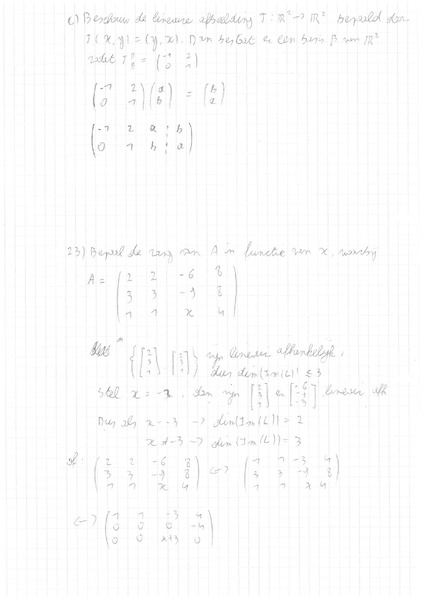 c) Beschouw de lineaire afbeelding T: ℝ² → ℝ² bepaald door
T(x,y) = (y,x). Dan bestaat er een basis β van ℝ²
zodat T_β^β = (-1 2
0 1)
(-1 2
0 1) (a
b) = (b
a)
(-1 2 a ⋮ b
0 1 b ⋮ a)
23) Bepaal de rang van A in functie van x, waarbij
A = (2 2 -6 8
3 3 -9 8
1 1 x 4)
{[2 3 1], [2 3 1]} zijn lineair afhankelijk,
dus dim(Im(L)) ≤ 3
Stel x = -3, dan zijn [2 3 1] en [-6 -9 -3] lineair afh
Dus als x = -3 → dim(Im(L)) = 2
x ≠ -3 → dim(Im(L)) = 3
of: (2 2 -6 8
3 3 -9 8
1 1 x 4) ↔ (1 1 -3 4
3 3 -9 8
1 1 x 4)
↔ (1 1 -3 4
0 0 0 -4
0 0 x+3 0)